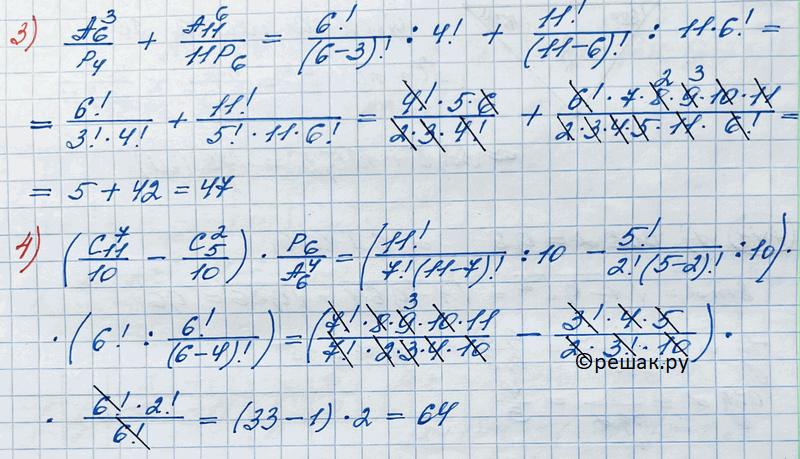 3) A₆³/P₄ + A₁₁⁶/11P₆ = 6!/(6-3)! : 4! + 11!/(11-6)! : 11·6! =
= 6!/3!·4! + 11!/5!·11·6! = 4!·5·6/2·3·4! + 6!·7·8²·9³·10·11/2·3·4·5·11·6! =
= 5 + 42 = 47
4) (C₁₁⁷/10 - C₅²/10) · P₆/A₆⁴ = (11!/7!(11-7)! : 10 - 5!/2!(5-2)! : 10) ·
· (6! : 6!/(6-4)!) = (7!·8·9³·10·11/7!·2·3·4·10 - 3!·4·5/2·3!·10) ·
©решак.ру
· 6!·2!/6! = (33-1)·2 = 64